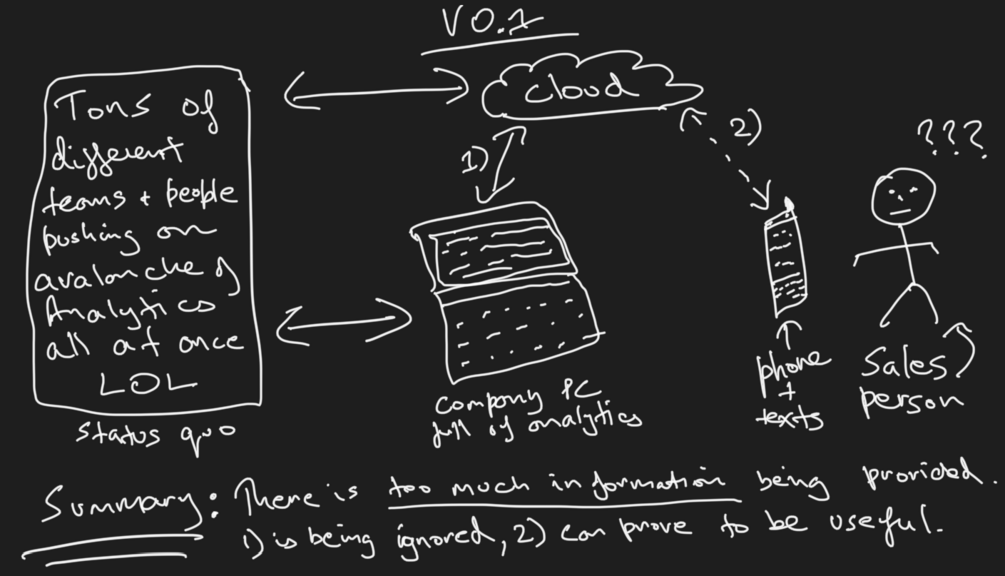 V 0.1
Tons of
different
teams + people
pushing on
avalanche of
Analytics
all at once
LOL
status quo
cloud
1)
2)
company PC
full of analytics
phone
+
texts
???
Sales
person
Summary: There is too much information being provided.
1) is being ignored, 2) can prove to be useful.